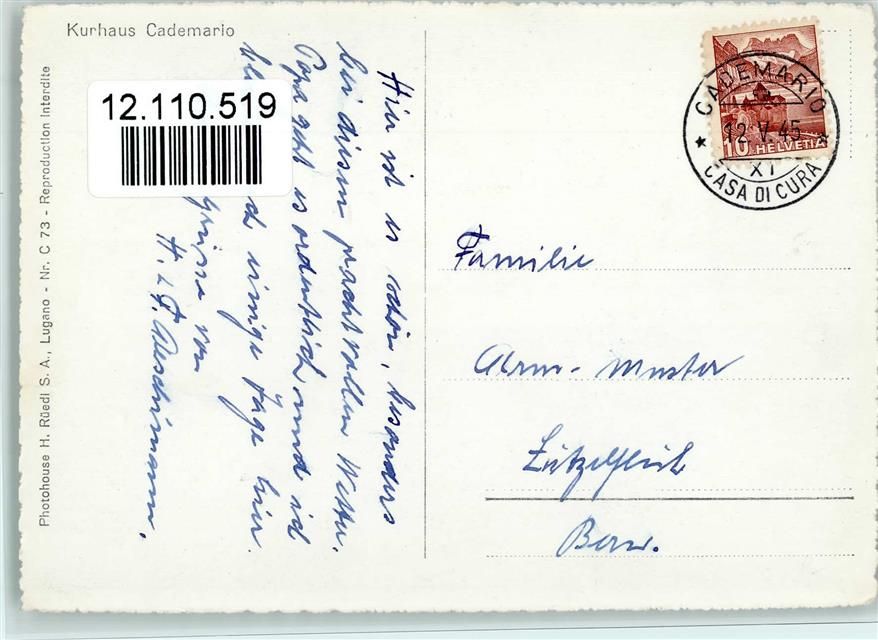 Kurhaus Cademario
12.110.519
Photohouse H. Rüedi S. A., Lugano - Nr. C 73 - Reproduction interdite
Hier ist es schön, besonders
bei diesem prachtvollen Wetter.
Papa geht es ordentlich und ich
einige Tage hier.
Grüsse von
H. & F. Aeschimann.
CADEMARIO
12.V.45
XI
CASA DI CURA
10 HELVETIA
Familie
Muster
Lützelflüh
Bern.